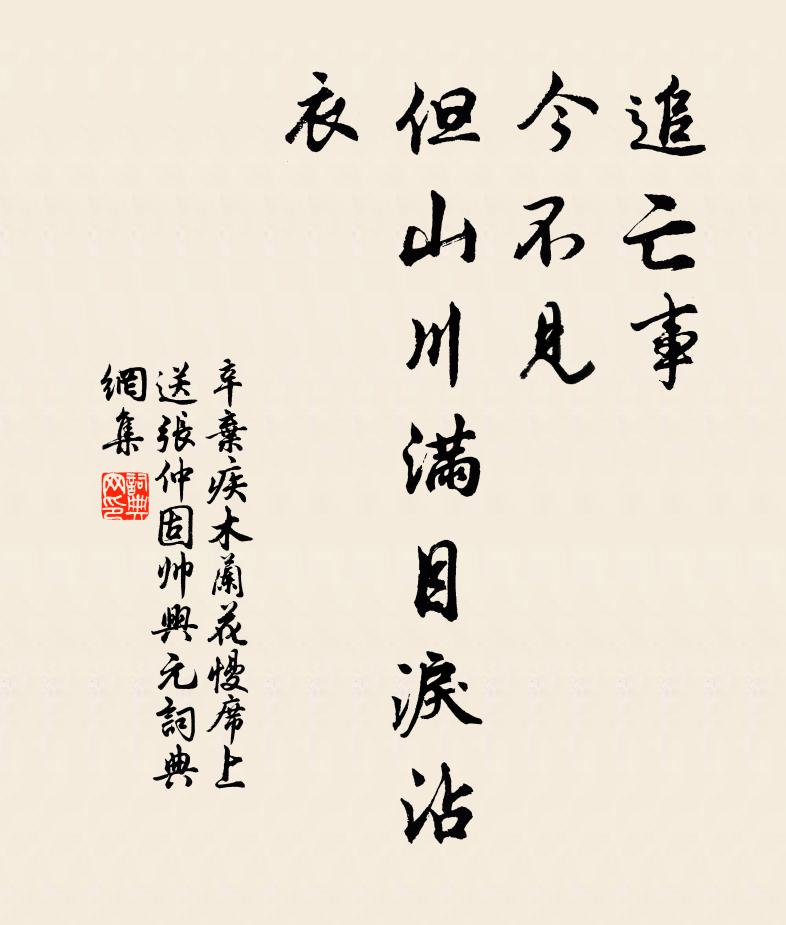 追亡事
今不見
但山川滿目淚沾
衣
辛棄疾木蘭花慢席上
送張仲固帅興元詞典
網集
詞典
网印